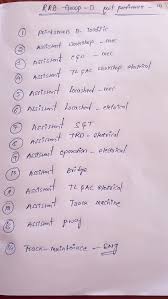 RRB Group - D post preference -
① pointsmen B traffic
② Assistant workshop - mec
③ Assistant C&W - mec
④ Assistant TL &AC workshop electrical
⑤ Assistant Locoshed - mec
⑥ Assistant Locoshed - electrical
⑦ Assistant S&T
⑧ Assistant TRD - electrical
⑨ Assistant operation - electrical
Assistant Bridge
Assistant TL &AC electrical
Assistant Track machine
Assistant pway
Track - maintainer - Eng